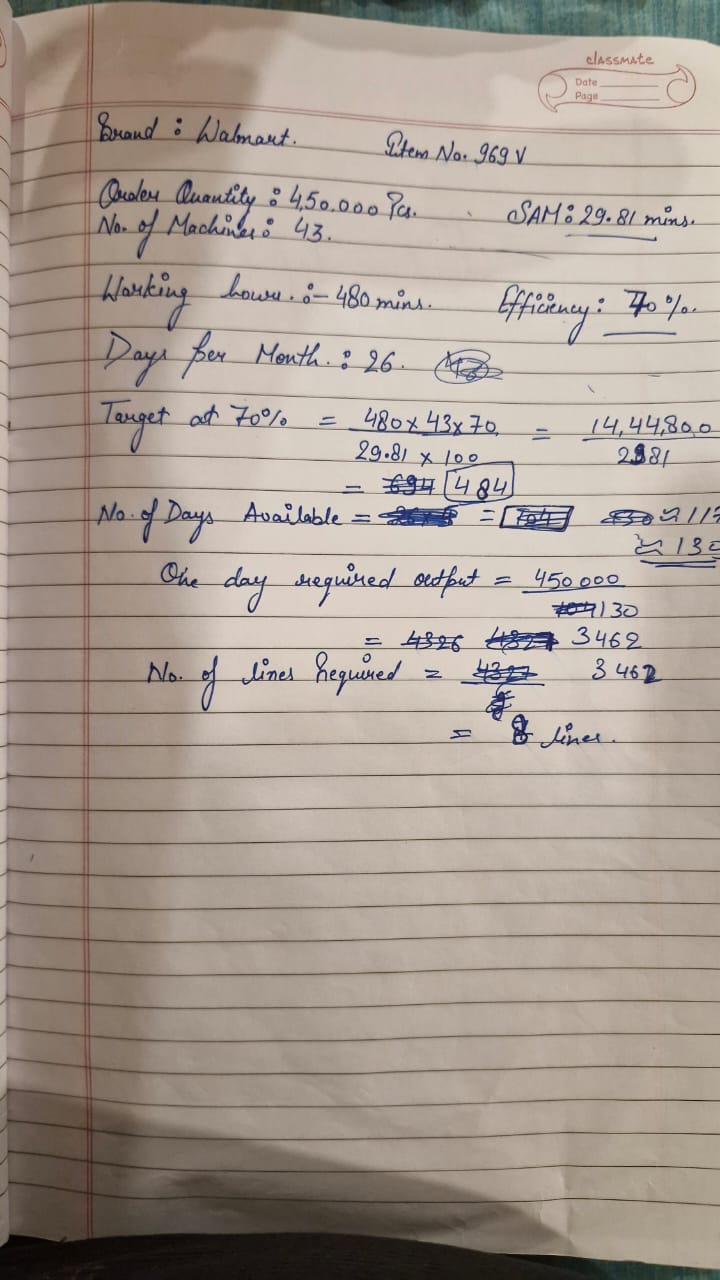 classmate
Date
Page
Brand : Walmart. Item No. 969 V
Order Quantity : 450.000 Pcs. SAM : 29.81 mins.
No. of Machines : 43.
Working hours. :- 480 mins. Efficiency : 70%.
Days per Month. : 26.
Target at 70% = 480 x 43 x 70 = 14,44,800
29.81 x 100 2981
= 694 484
No. of Days Available = = 104 ≈ 117
≈ 130
One day required output = 450 000
104 130
= 4326 4327 3462
No. of lines Required = 4327 3462
= 8 lines.